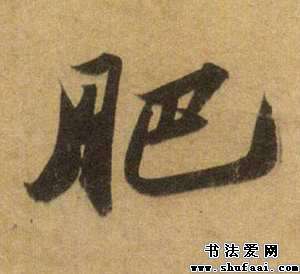 肥
书法爱网
www.shufaai.com